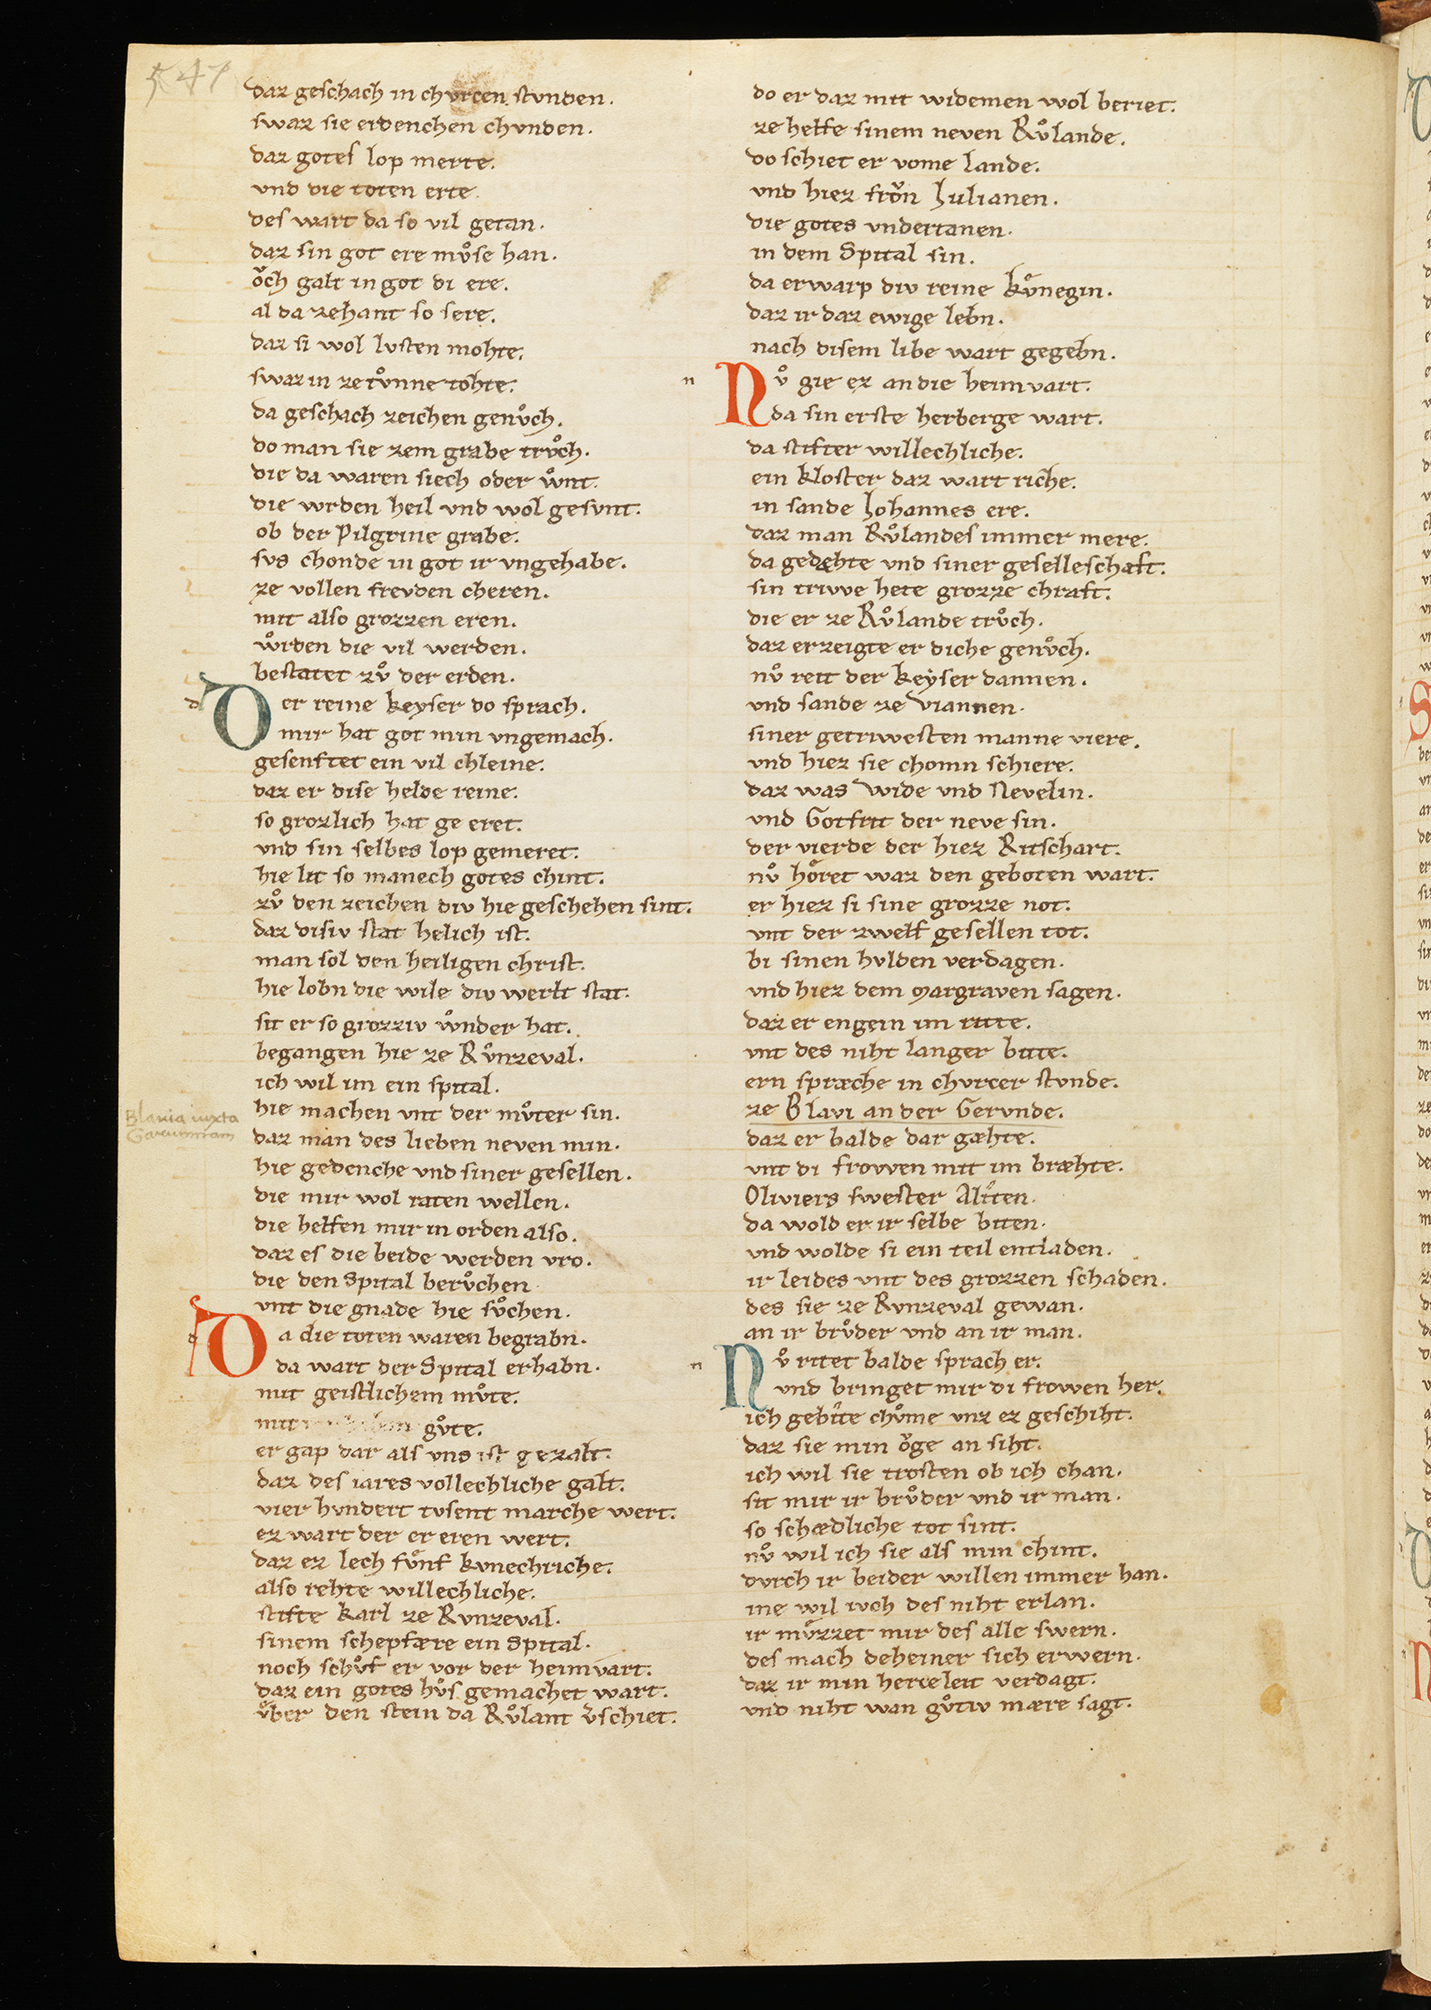 547
daz geschach in chvrcen stvnden.
swaz sie erdenchen chvnden.
daz gotes lop merte.
vnd die toten erte.
des wart da so vil getan.
daz sin got ere mvͦse han.
oͮch galt in got di ere.
al da zehant so sere.
daz si wol lvsten mohte.
swaz in ze wͦnne tohte.
da geschach zeichen genvͦch.
do man sie zem grabe trvͦch.
die da waren siech oder wͦnt.
die wrden heil vnd wol gesvnt.
ob der Pilgrine grabe.
svs chonde in got ir vngehabe.
ze vollen frevden cheren.
mit also grozzen eren.
wͦrden die vil werden.
bestatet zvͦ der erden.
Der reine keyser do sprach.
mir hat got min vngemach.
gesenftet ein vil chleine.
daz er dise helde reine.
so grozlich hat ge eret.
vnd sin selbes lop gemeret.
hie lit so manech gotes chint.
zvͦ den zeichen div hie geschehen sint.
daz disiv stat helich ist.
man sol den heiligen christ.
hie lobn die wile div werlt stat.
sit er so grozziv wͦnder hat.
begangen hie ze Rvͦnzeval.
ich wil im ein spital.
hie machen vnt der mvͦter sin.
Blauia iuxta
Garumnam
daz man des lieben neven min.
hie gedenche vnd siner gesellen.
die mir wol raten wellen.
die helfen mir in orden also.
daz es die beide werden vro.
die den Spital bervͦchen
vnt die gnade hie svͦchen.
Da die toten waren begrabn.
da wart der Spital erhabn.
mit geistlichem mvͦte.
mit gvͦte.
er gap dar als vns ist gezalt.
daz des iares vollechliche galt.
vier hvndert tvsent marche wert.
ez wart der er eren wert.
daz ez lech fvͤnf kvnechriche.
also rehte willechliche.
stifte Karl ze Rvnzeval.
sinem schepfære ein Spital.
noch schvͦf er vor der heimvart.
daz ein gotes hvͦs gemachet wart.
vͤber den stein da Rvͦlant v͛schiet.
do er daz mit widemen wol beriet.
ze helfe sinem neven Rvͦlande.
do schiet er vome lande.
vnd hiez froͮn Julianen.
die gotes vndertanen.
in dem Spital sin.
da erwarp div reine kvͤnegin.
daz ir daz ewige lebn.
nach disem libe wart gegebn.
Nvͦ gie ez an die heimvart.
da sin erste herberge wart.
da stifter willechliche.
ein kloster daz wart riche.
in sande Johannes ere.
daz man Rvͦlandes immer mere.
da gedęhte vnd siner geselleschaft.
sin triwe hete grozze chraft.
die er ze Rvͦlande trvͦch.
daz erzeigte er diche genvͦch.
nvͦ reit der keyser dannen.
vnd sande ze Viannen.
siner getriwesten manne viere.
vnd hiez sie chomn schiere.
daz was Wide vnd Nevelin.
vnd Gotfrit der neve sin.
der vierde der hiez Ritschart.
nvͦ hoͤret waz den geboten wart.
er hiez si sine grozze not.
vnt der zwelf gesellen tot.
bi sinen hvlden verdagen.
vnd hiez dem margraven sagen.
daz er engein im ritte.
vnt des niht langer bitte.
ern spræche in chvrcer stvnde.
ze Blavi an der Gervnde.
daz er balde dar gæhte.
vnt di frowen mit im bræhte.
Oliviers swester Aliten.
da wold er ir selbe biten.
vnd wolde si ein teil entladen.
ir leides vnt des grozzen schaden.
des sie ze Rvnzeval gewan.
an ir brvͦder vnd an ir man.
Nvͦ ritet balde sprach er.
vnd bringet mir di frowen her.
ich gebite chvͦme vnz ez geschiht.
daz sie min oͮge an siht.
ich wil sie trosten ob ich chan.
sit mir ir brvͦder vnd ir man.
so schædliche tot sint.
nvͦ wil ich sie als min chint.
dvrch ir beider willen immer han.
ine wil ivch des niht erlan.
ir mvͤzzet mir des alle swern.
des mach deheiner sich erwern.
daz ir min herceleit verdagt.
vnd niht wan gvͦtiv mære sagt.